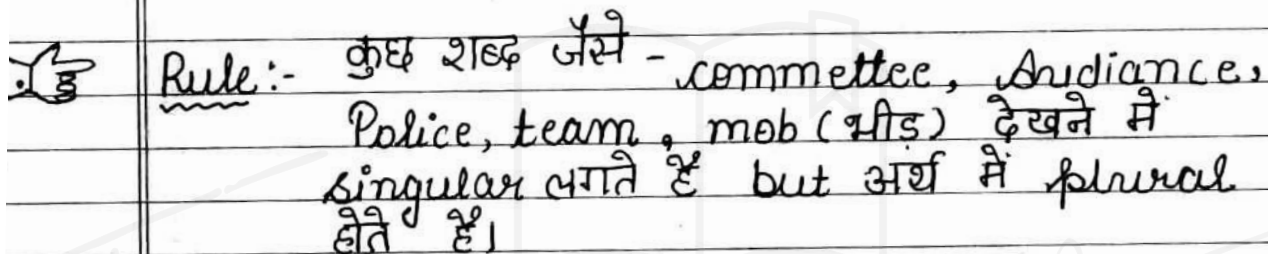 Rule:- कुछ शब्द जैसे - commettee, Audiance,
Police, team, mob (भीड़) देखने में
singular लगते हैं but अर्थ में plural
होते हैं।